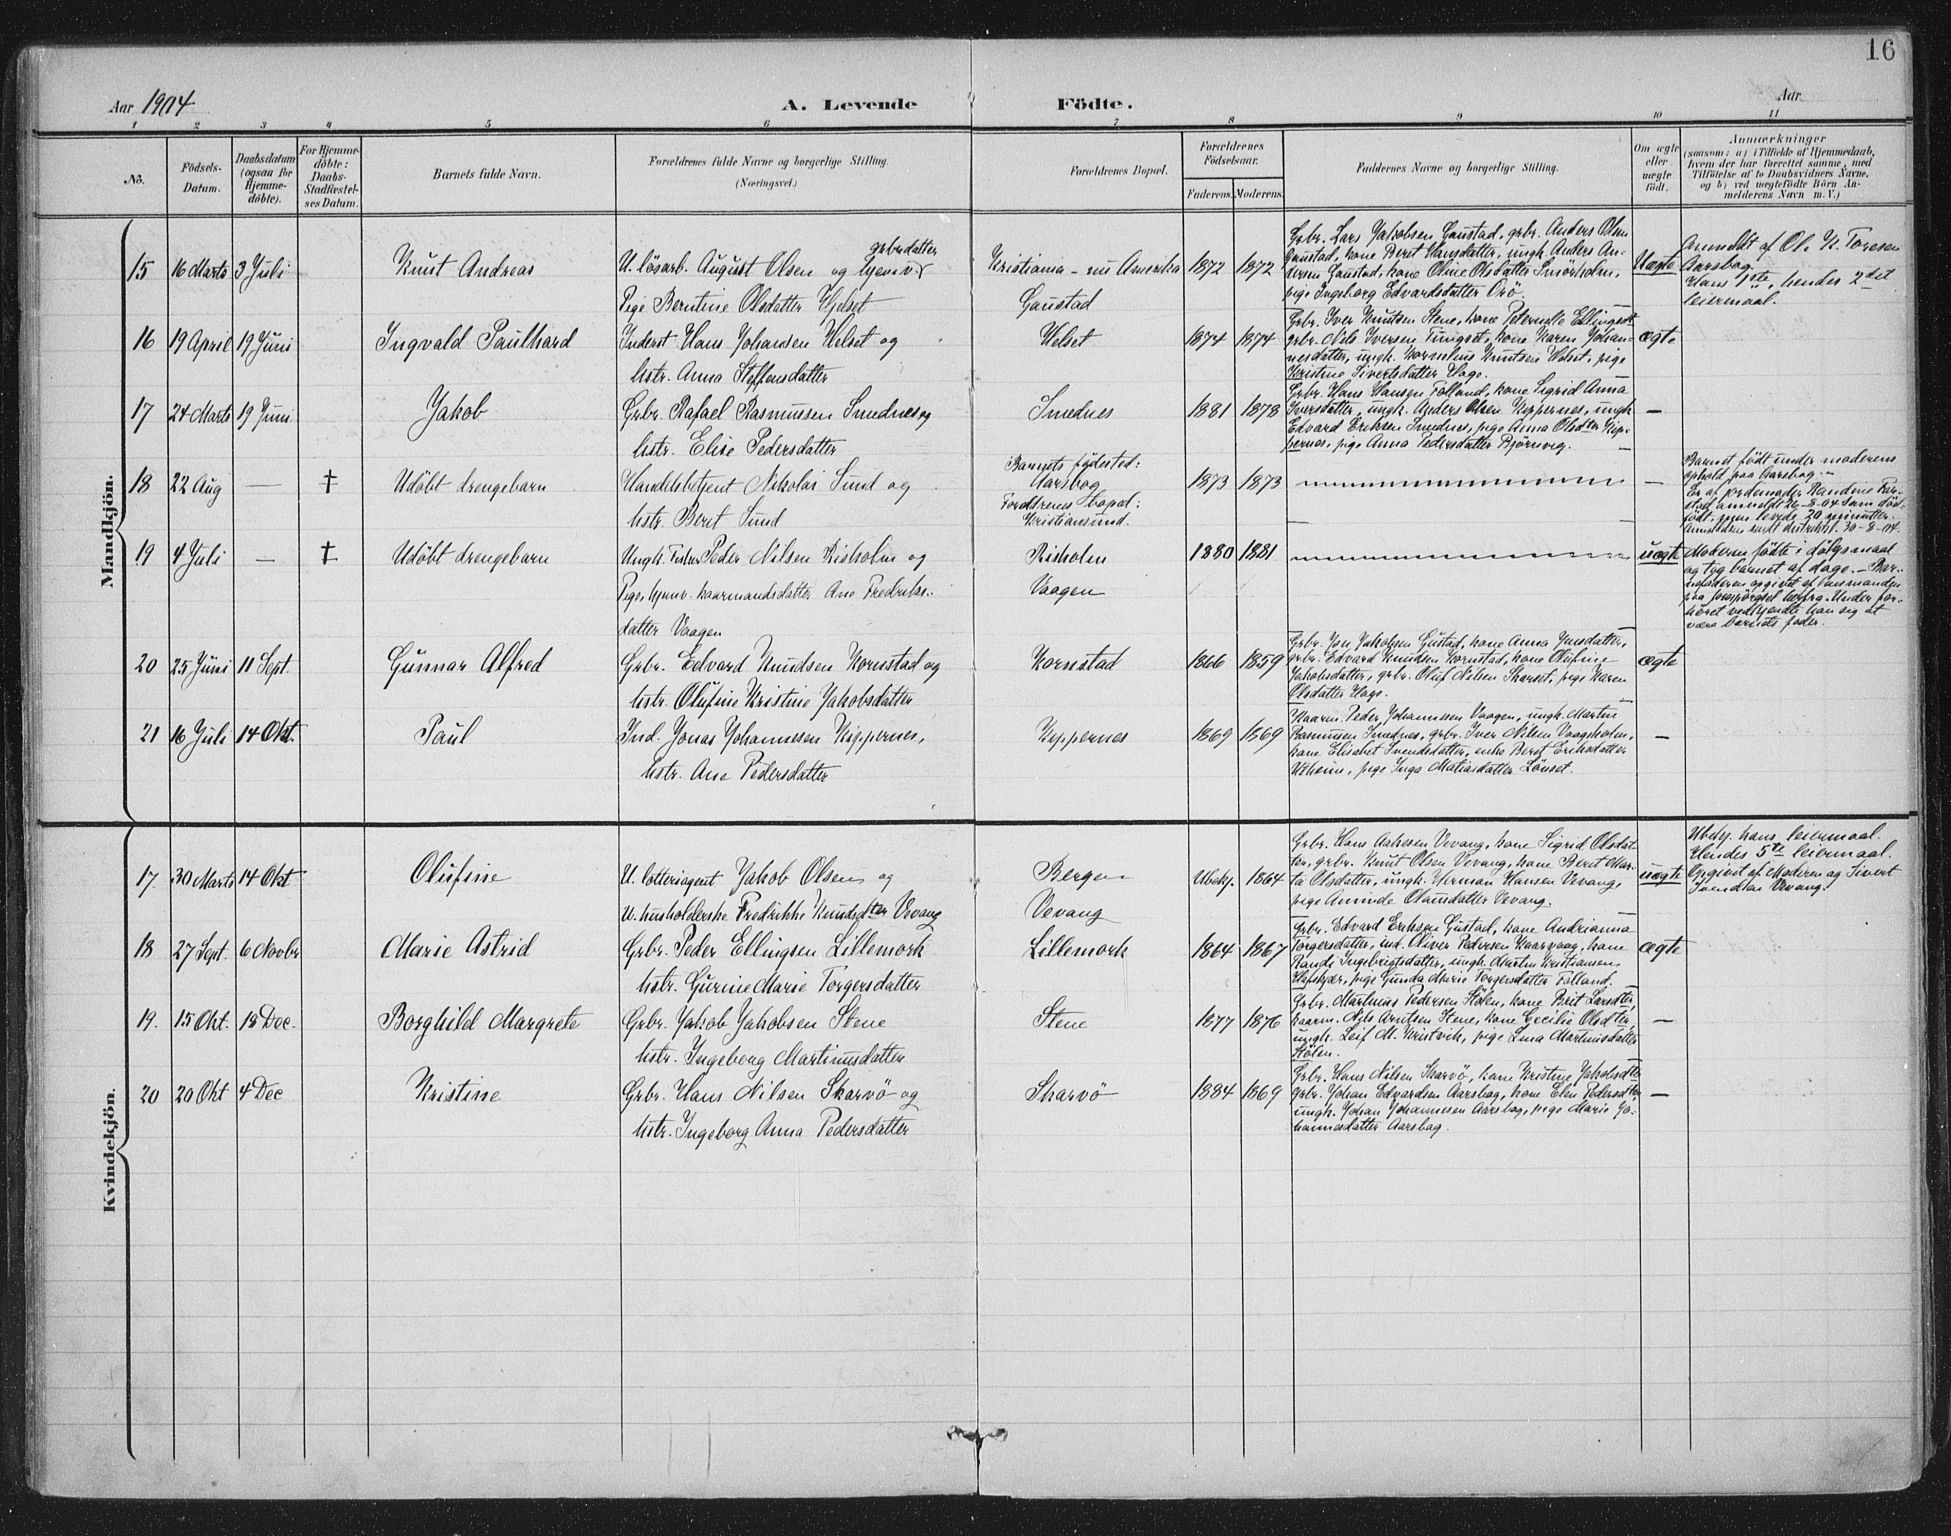 16
Aar 1904
A. Levende
Födte.
Aar
1 2 3 4 5 6 7 8 9 10 11
No.
Födsels-Datum.
Daabsdatum (ogsaa for Hjemme-döbte).
For Hjemme-döbte: Daabs-Stadfæstel-ses Datum.
Barnets fulde Navn.
Forældrenes fulde Navne og borgerlige Stilling.
(Næringsvei.)
Forældrenes Bopæl.
Forældrenes Födselsaar.
Faderens. Moderens.
Faddernes Navne og borgerlige Stilling.
Om ægte eller uægte födt.
Anmærkninger
(saasom: a) i Tilfælde af Hjemmedaab,
hvem der har forrettet samme, med
Tilföielse af to Daabsvidners Navne,
og b) ved uægtefödte Börn An-
melderens Navn m.V.)
Mandkjön.
15 16 Marts 3 Juli Knut Andreas
U. lösarb. August Olsen og Hjemv. grbrdatter
Pige Berntine Olsdatter Helset
Kristiania - nu Amerika
Gaustad
1872 1872
Grbr. Lars Jakobsen Gaustad, grbr. Anders Olsen
Gaustad, kone Beret Hansdatter, ungk. Anders An-
dersen Gaustad, kone Oline Olsdatter Smörholm,
pige Ingeborg Edvardsdatter Orö.
Uægte
Anmeldt af Ol. K. Toresen
Aarsbog.
Hans 1ste, hendes 2det
leiermaal.
16 19 April 19 Juni Ingvald Paulhard
Inderst Hans Johansen Helset og
hstr. Anna Steffensdatter
Helset
1874 1874
Grbr. Iver Knutsen Stene, kone Peternelle Ellingsdt
grbr. Nils Iversen Tungset, kone Karen Johan-
nesdatter, ungk. Kornelius Knutsen Helset, pige
Kristine Sivertsdatter Hage.
ægte
17 24 Marts 19 Juni Jakob
Grbr. Rafael Rasmussen Smednes og
hstr. Elise Pedersdatter
Smednes
1881 1878
Grbr. Hans Hansen Folland, kone Sigrid Anna
Iversdatter, ungk. Anders Olsen Kippernes, ungk.
Edvard Eriksen Smednes, pige Anna Olsdtr Kip-
pernes, pige Anna Pedersdatter Björnvig.
—
18 22 Aug — † Udöbt drengebarn
Handelsbetjent Nikolai Sund og
hstr. Beret Sund
Barnets födested:
Aarsbog
Forældrenes bopæl:
Kristiansund.
1873 1873
—
Barnet födt under moderens
ophold paa Aarsbog.—
Er af jordemoder Randine
anmeldt 26-8-04 som död-
födt, men levede 20 minutter.
Anmeldsen sendt distriktsl. 30-8-04.
19 4 Juli — † Udöbt drengebarn
Ungk. Fisker Peder Nilsen Risholm og
Pige, hjemv. kaarmandsdatter Ane Fredriks-
datter Vaagen
Risholm
Vaagen
1880 1881
uægte
Moderen födte i dölgsmaal
og tog barnet af dage.— Bar-
nefaderen opgivet af lensmanden
paa forespörgsel herfra. Under for-
höret vedkjendte han sig at
være barnets fader.
20 25 Juni 11 Sept. Gunnar Alfred
Grbr. Edvard Knudsen Kornstad og
hstr. Olufine Kristine Jakobsdatter
Kornstad
1866 1859
Grbr. Jon Jakobsen Gustad, kone Anna Jonsdatter,
grbr. Edvard Knudsen Kornstad, kone Olufine
Jakobsdatter, grbr. Oluf Nilsen Skarset, pige Karen
Olsdatter Hage.
ægte
21 16 Juli 14 Okt. Paul
Ind. Jonas Johannesen Kippernes,
hstr. Ane Pedersdatter
Kippernes
1869 1869
Kaarm. Peder Johannesen Vaagen, ungk. Martin
Rasmussen Smednes, grbr. Iver Nilsen Vaagsholm,
kone Elisabet Svendsdatter, enke Beret Eriksdatter
Utheim, pige Inga Matiasdatter Lönset.
—
Kvindekjön.
17. 30 Marts 14 Okt Olufine
U. lotteriagent Jakob Olsen og
U. husholderske Fredrikke Knudsdtter Vevang
Bergen
Vevang
Ubekj. 1864
Grbr. Hans Aakesen Vevang, kone Sigrid Olsdat-
ter, grbr. Knut Olsen Vevang, kone Beret Mar-
ta Olsdatter, ungk. Herman Hansen Vevang,
pige Aminde Olausdatter Vevang.
uægte
Ubekj. hans leiermaal.
Hendes 5te leiermaal.
Opgivet af Moderen og Sivert
Vevang.
18 27 Sept. 6 Novbr Marie Astrid
Grbr. Peder Ellingsen Lillemork
hstr. Gurine Marie Torgersdatter
Lillemork
1864 1867
Grbr. Edvard Eriksen Gustad, kone Andrianna
Torgersdatter, ind. Oliver Pedersen Kaarvaag, kone
Randi Ingebrigtsdatter, ungk. Martin Kristiansen
Hafskjær, pige Gunda Marie Torgersdatter Folland.
ægte
19. 15 Okt. 18 Dec. Borghild Margrete
Grbr. Jakob Jakobsen Stene
hstr. Ingeborg Martinusdatter
Stene
1877 1876
Grbr. Martinus Pedersen Stölen, kone Brit Larsdtr,
kaarm. Nils Arntsen Stene, kone Cecilie Olsdtr,
ungk. Leif M. Kristvik, pige Lina Martinusdatter
Stölen.
—
20 20 Okt 4 Dec Kristine
Grbr. Hans Nilsen Skarvö og
hstr. Ingeborg Anna Pedersdatter
Skarvö
1884 1869
Grbr. Hans Nilsen Skarvö, kone Kristine Jakobsdtr
grbr. Johan Edvardsen Aarsbog, kone Elen Pedersdtr,
ungk. Johan Johannesen Aarsbog, pige Marie Jo-
hannesdatter Aarsbog.
—